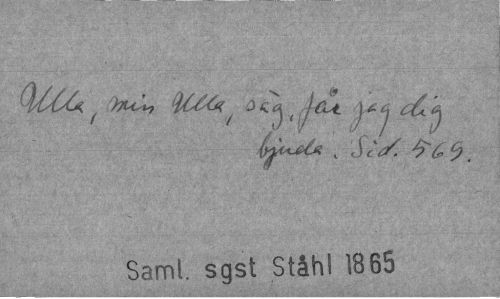 Ulla, min Ulla, säg, får jag dig
bjuda. Sid. 569.
Saml. sgst Ståhl 1865